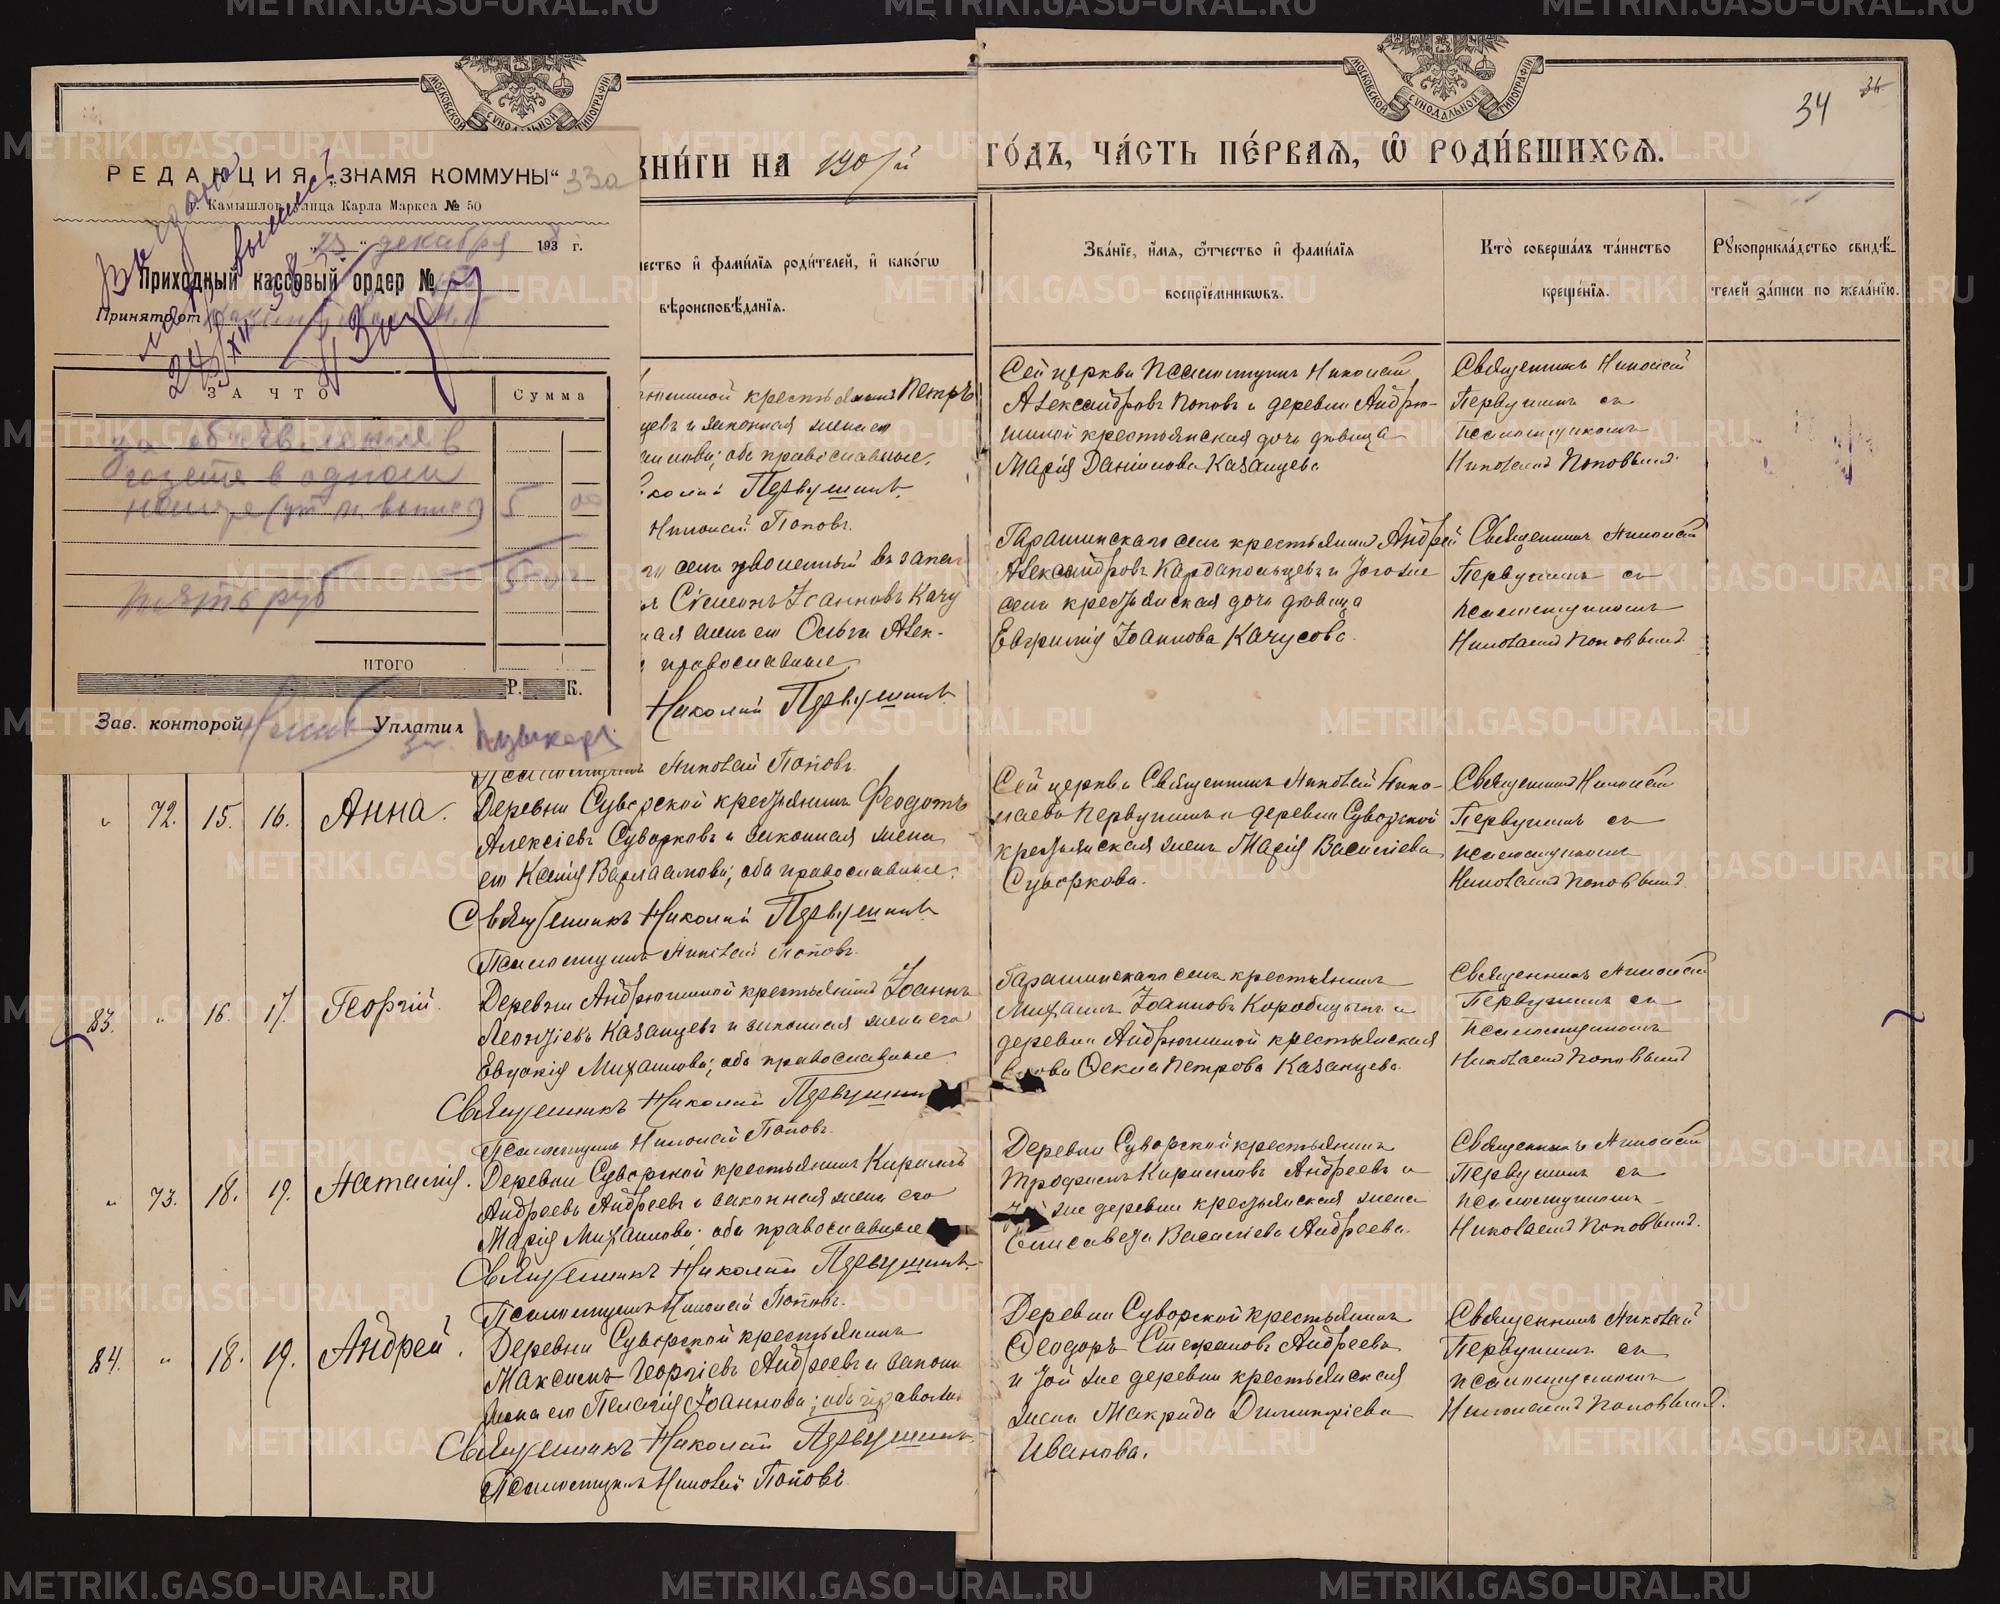 МОСКОВСКОЙ СѴНОДАЛЬНОЙ ТИПОГРАФІИ
МОСКОВСКОЙ СѴНОДАЛЬНОЙ ТИПОГРАФІИ
34
КНИ́ГИ НА 1901й ГО́ДЪ, ЧА́СТЬ ПЕ́РВАѦ, Ѡ РОДИ́ВШИХСѦ.
РЕДАКЦИЯ „ЗНАМЯ КОММУНЫ" 33а
г. Камышлов, улица Карла Маркса № 50
„23" декабря 1938 г.
Приходный кассовый ордер №
Принято от
Выдано
выпись
24/XII 38
ЗА ЧТО Сумма
за объявление в
газете в одном
номере 5 00
Пять руб 5
ИТОГО
Р. К.
Зав. конторой Уплатил
чество и҆ фами́лїѧ роди́телей, и҆ како́гѡ
вѣроисповѣ́данїѧ.
Зва́нїе, и҆́мѧ, ѻ҆́тчество и҆ фами́лїѧ
воспрїе́мникѡвъ.
Кто̀ соверша́лъ та́инство
креще́нїѧ.
Рꙋкоприкла́дство свидѣ́-
телей за́писи по жела́нїю.
крестьянинъ Петръ
и законная жена его
оба православные.
Николай Первушинъ.
Николай Поповъ.
Сей церкви Псаломщикъ Николай
Александровъ Поповъ и деревни Андрю-
шиной крестьянская дочь девица
Марія Даніилова Казанцева
Священникъ Николай
Первушинъ съ
псаломщикомъ
Николаемъ Поповымъ.
села уволенный въ запас
Симеонъ Іоанновъ Качу
жена его Ольга Алек-
православные.
Николай Первушинъ.
Псаломщикъ Николай Поповъ.
Гарашинскаго села крестьянинъ Андрей
Александровъ Кардапольцевъ и того же
села крестьянская дочь девица
Іоаннова Качусова.
Священникъ Николай
Первушинъ съ
псаломщикомъ
Николаемъ Поповымъ.
" 72. 15. 16. Анна.
Деревни Суворской крестьянинъ Феодотъ
Алексіевъ Суворковъ и законная жена
его Ксенія Варлаамова; оба православные.
Священникъ Николай Первушинъ.
Псаломщикъ Николай Поповъ.
Сей церкви Священникъ Николай Нико-
лаевъ Первушинъ и деревни Суворской
крестьянская жена Марія Василіева
Суворкова.
Священникъ Николай
Первушинъ съ
псаломщикомъ
Николаемъ Поповымъ.
83. " 16. 17. Георгій.
Деревни Андрюшиной крестьянинъ Іоаннъ
Леонтіевъ Казанцевъ и законная жена его
Евдокія Михаилова; оба православные.
Священникъ Николай Первушинъ
Псаломщикъ Николай Поповъ.
Гарашинскаго села крестьянинъ
Михаилъ Іоанновъ Коробицынъ и
деревни Андрюшиной крестьянская
вдова Фекла Петрова Казанцева.
Священникъ Николай
Первушинъ съ
псаломщикомъ
Николаемъ Поповымъ
" 73. 18. 19. Наталія.
Деревни Суворской крестьянинъ Кириллъ
Андреевъ Андреевъ и законная жена его
Марія Михаилова; оба православные
Священникъ Николай Первушинъ.
Псаломщикъ Николай Поповъ.
Деревни Суворской крестьянинъ
Трофимъ Кирилловъ Андреевъ и
той же деревни крестьянская жена
Елисавета Василіева Андреева.
Священникъ Николай
Первушинъ съ
псаломщикомъ
Николаемъ Поповымъ.
84. " 18. 19. Андрей.
Деревни Суворской крестьянинъ
Максимъ Георгіевъ Андреевъ и законн
жена его Пелагія Іоаннова; оба православн
Священникъ Николай Первушинъ.
Псаломщикъ Николай Поповъ.
Деревни Суворской крестьянинъ
Феодоръ Стефановъ Андреевъ
и той же деревни крестьянская
жена Макрида Димитріева
Иванова.
Священникъ Николай
Первушинъ съ
псаломщикомъ
Николаемъ Поповымъ.
METRIKI.GASO-URAL.RU